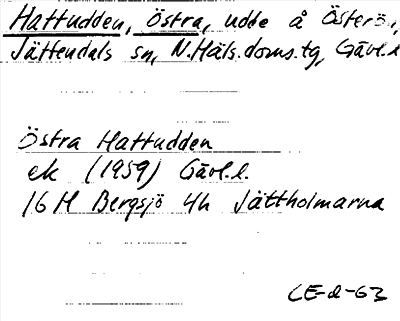 Hattudden, Östra, udde å Österön,
Jättendals sn, N.Häls.doms.tg, Gävl.l
Östra Hattudden
ek (1959) Gävl.l.
16 H Bergsjö 4h Jättholmarna
CE-d-63